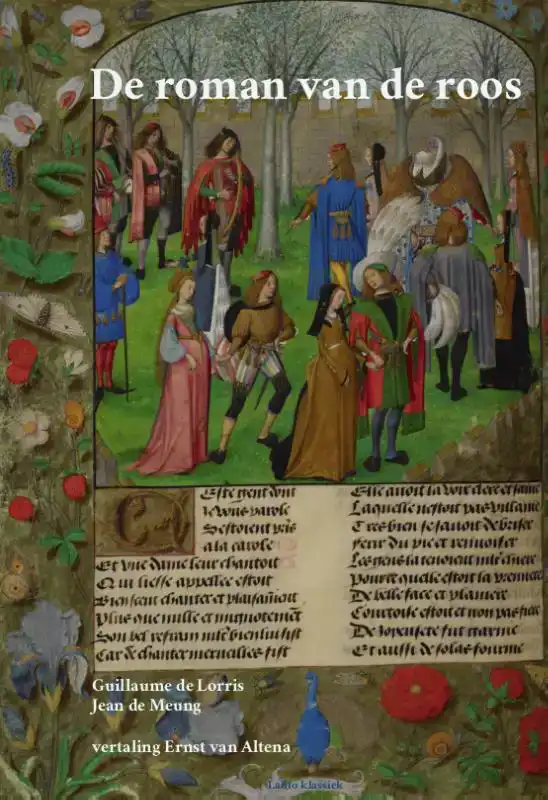 De roman van de roos
Ceste gent dont
ie vous parole
Sestoient pris
a la carole
Et vne dame leur chantoit
Qui liesse appellee estoit
Bien sceut chanter et plaisāmēt
Plus que nulle et mignotemēt
Son bel refrain bien lui sist
Car de chanter merueilles fist
Elle auoit la voix clere et saine
Laquelle nestoit pas villaine
Tres bien se sauoit debriser
ferir du pie et renuoiser
Les gens la tenoient chiere
Pource quelle estoit la premiere
De belle face et planiere
Courtoise estoit et non pas fiere
De fut
Et aussi de solas fournie
Guillaume de Lorris
Jean de Meung
vertaling Ernst van Altena
Lalito klassiek